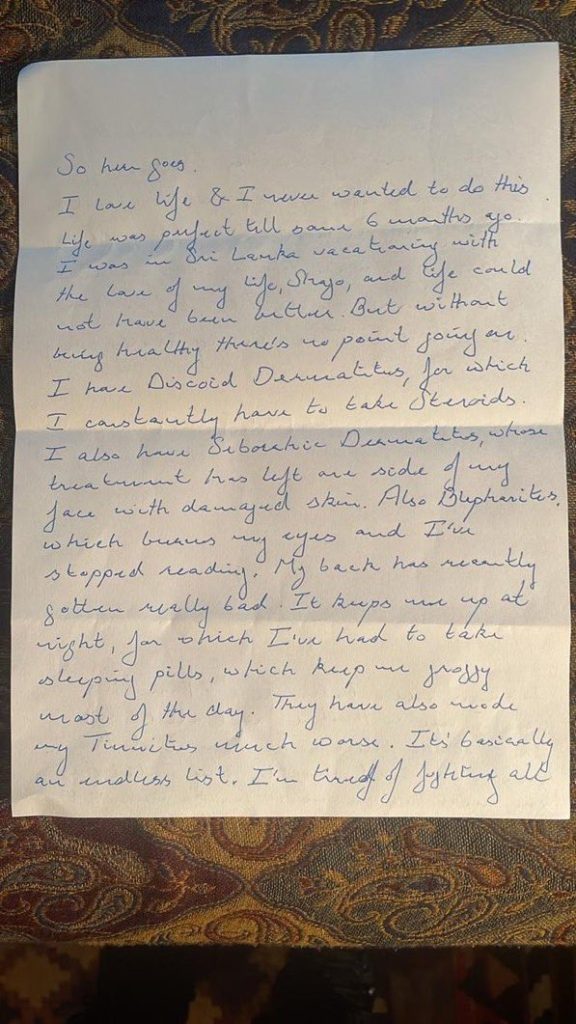 So here goes.
I love life & I never wanted to do this.
Life was perfect till some 6 months ago.
I was in Sri Lanka vacationing with
the love of my life, and life could
not have been better. But without
being healthy there's no point going on.
I have Discoid Dermatitus, for which
I constantly have to take Steroids.
I also have Seborhic Dermatitus, whose
treatment has left one side of my
face with damaged skin. Also Blepharites,
which burns my eyes and I've
stopped reading. My back has recently
gotten really bad. It keeps me up at
night, for which I've had to take
sleeping pills, which keep me groggy
most of the day. They have also made
my Tinnitus much worse. It's basically
an endless list. I'm tired of fighting all